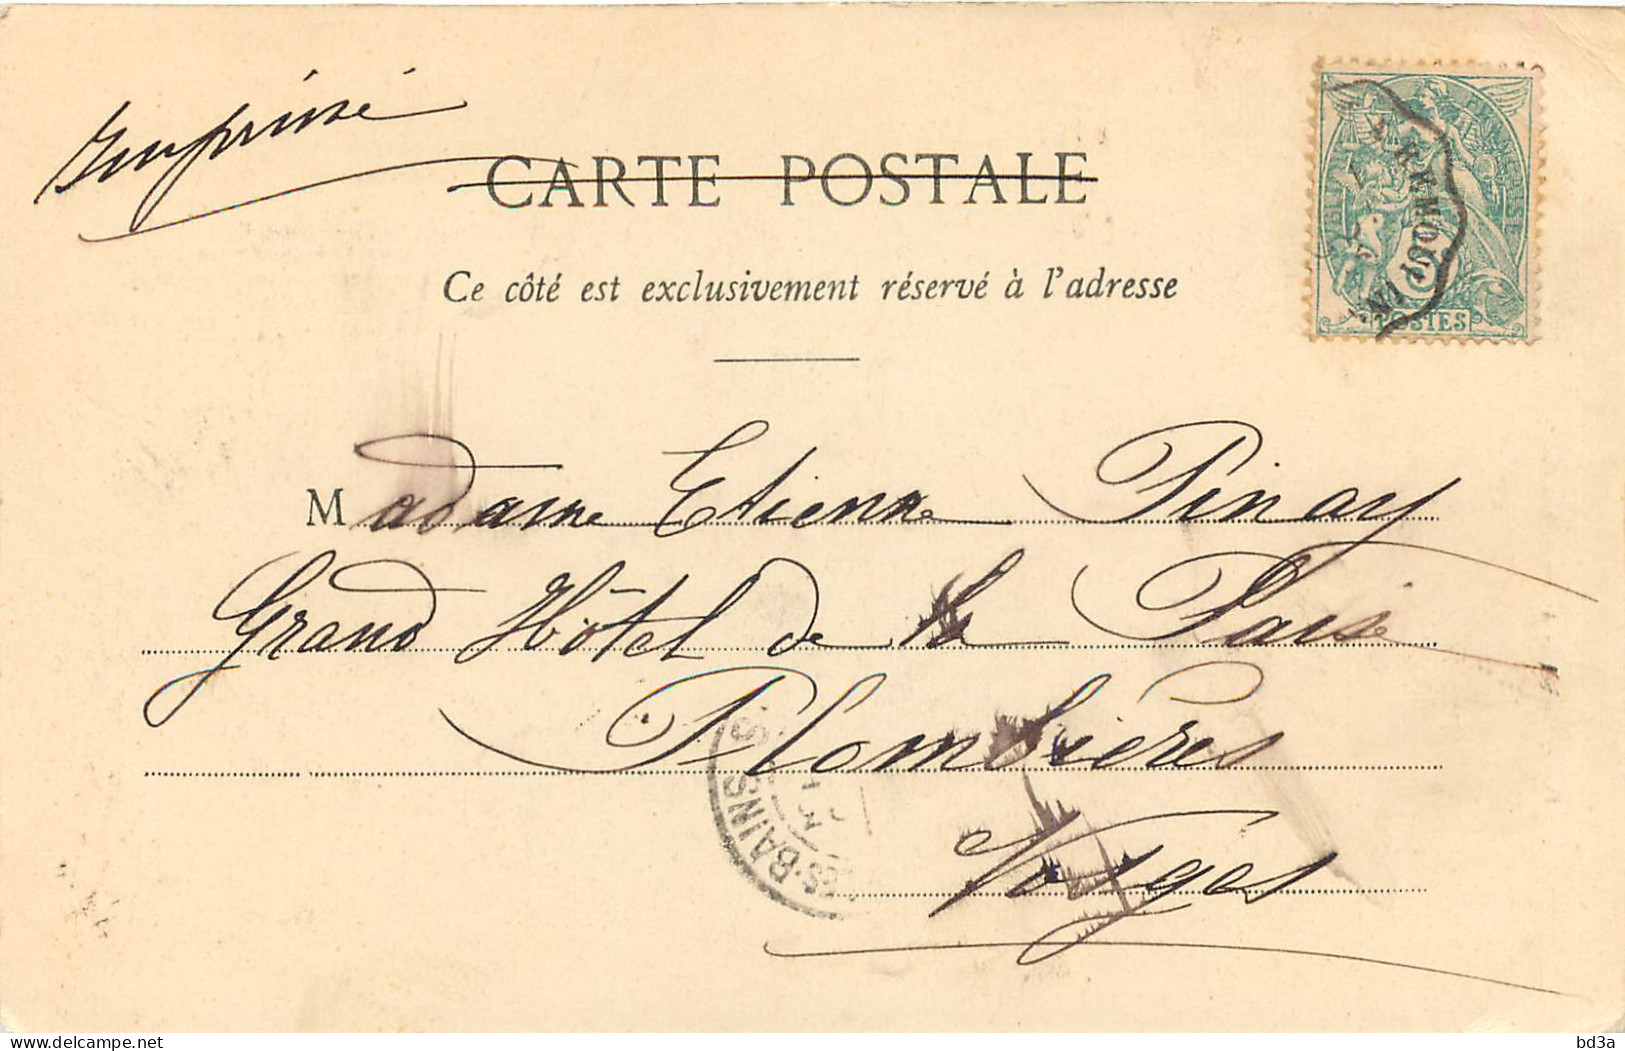 Imprimé
CARTE POSTALE
Ce côté est exclusivement réservé à l'adresse
POSTES
Madame Etienne Pinay
Grand Hôtel de la Paix
Plombières
BAINS
Vosges
bd3a